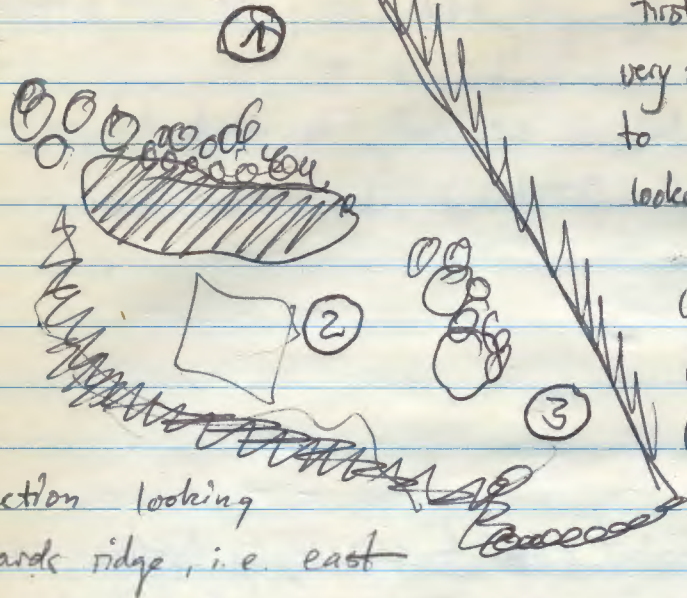 1
very
to
2
3
ction looking
ards ridge, i.e. east